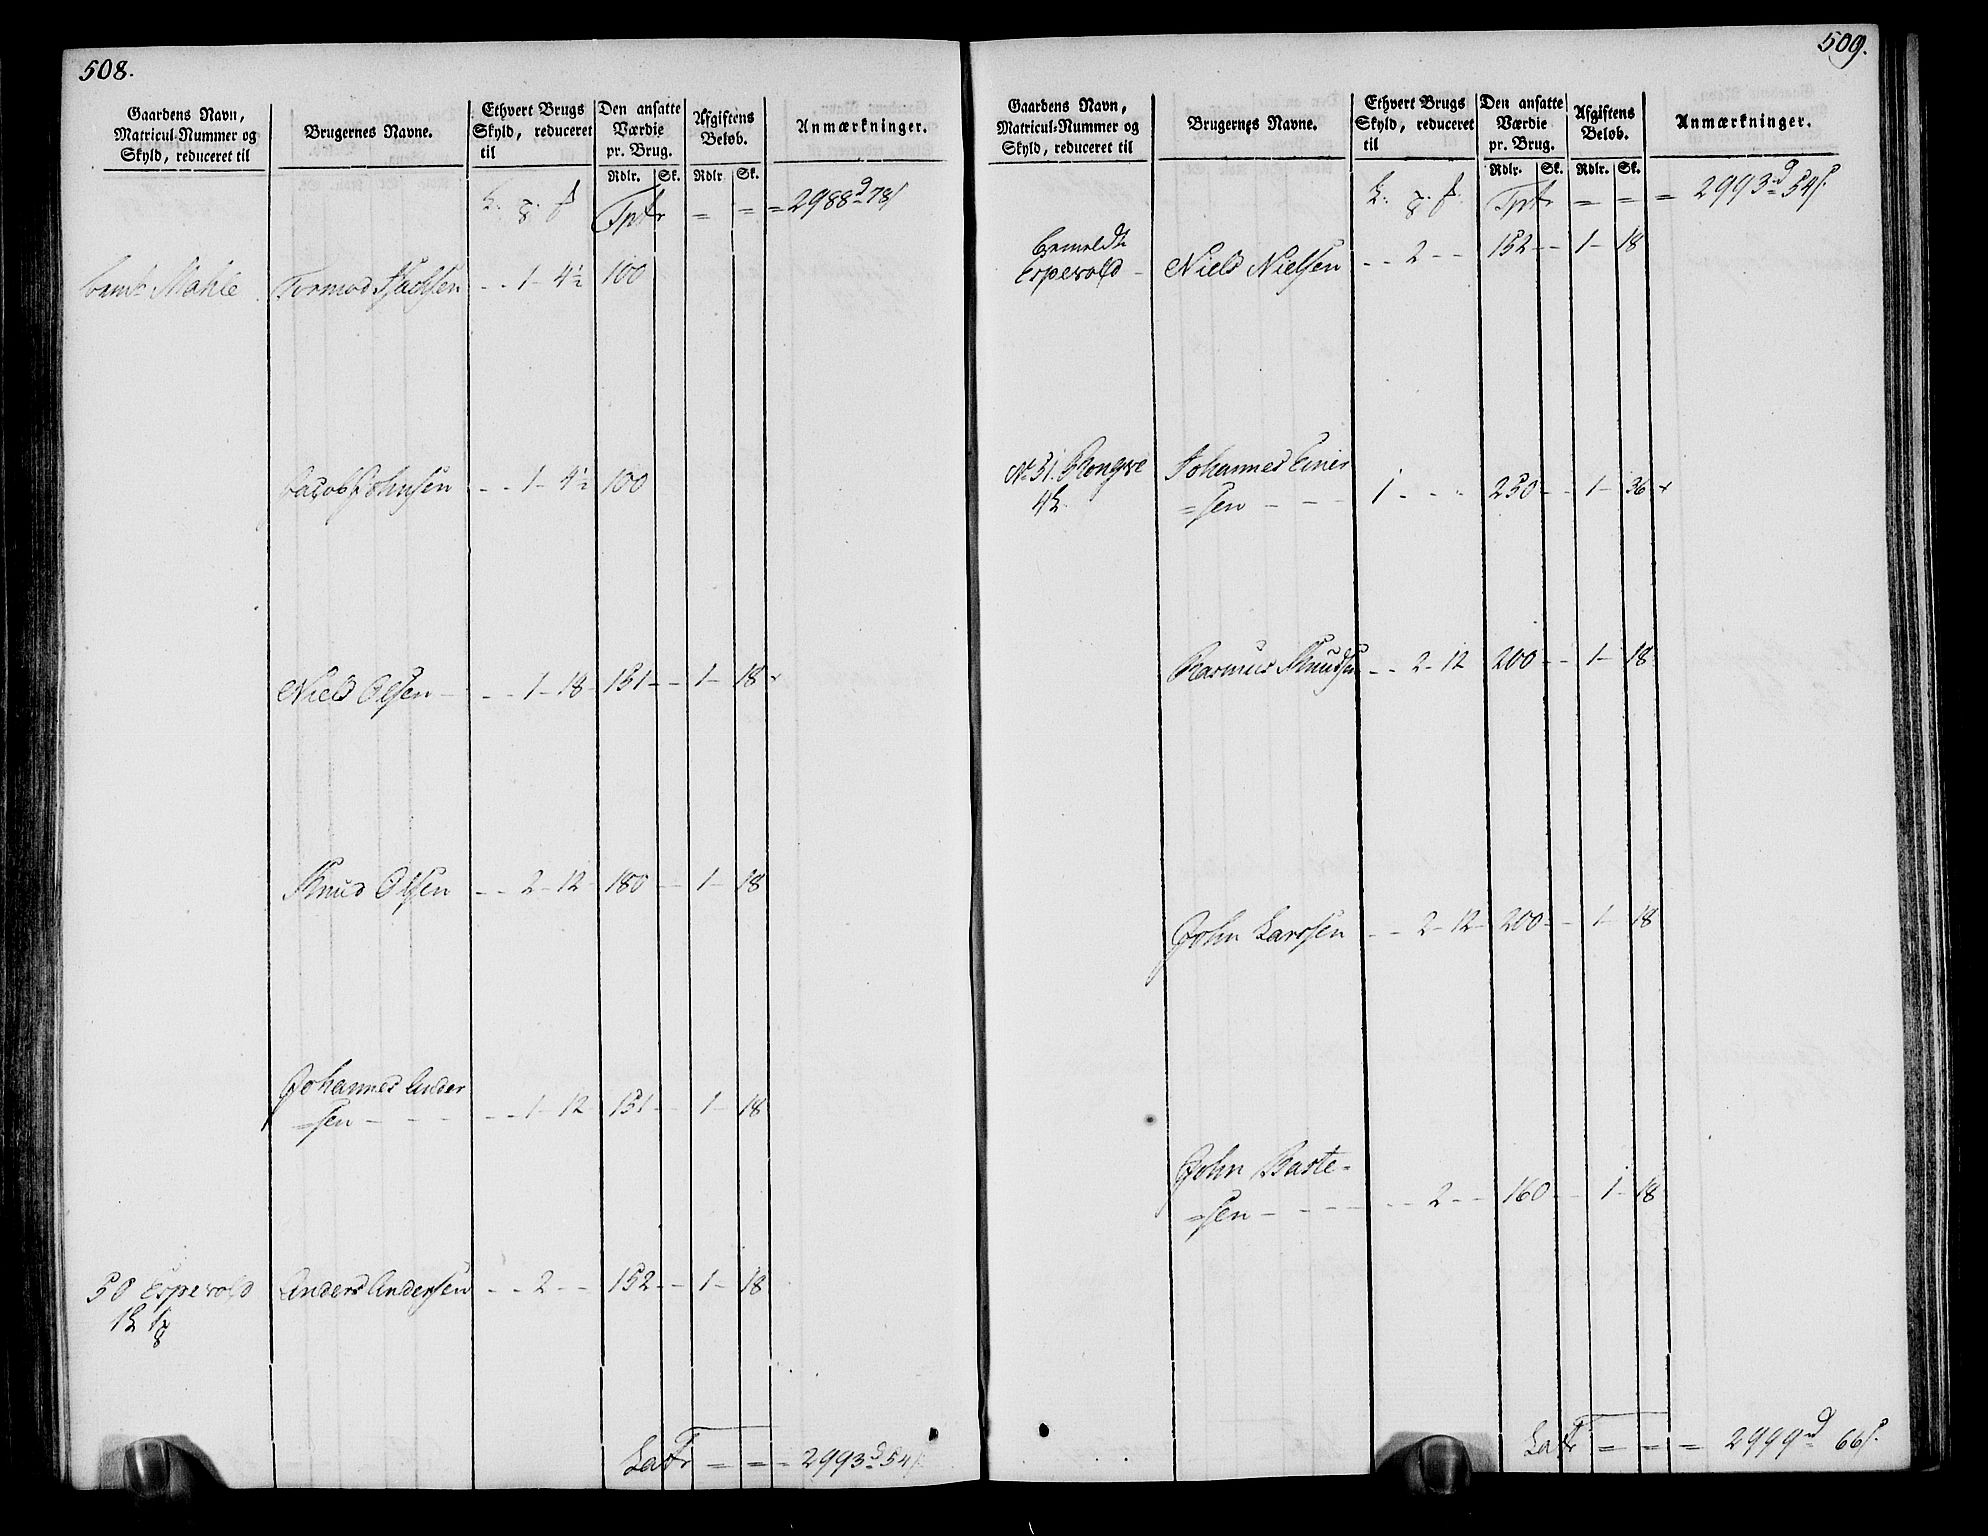 508.
Gaardens Navn, Matricul-Nummer og Skyld, reduceret til
Brugernes Navne.
Ethvert Brugs Skyld, reduceret til
Den ansatte Værdie pr. Brug.
Afgiftens Beløb.
Anmærkninger.
Rdlr. Sk. Rdlr Sk.
Tprt = = = 2988 78
Mahle Tormod - - 1 - 4½ 100
Jacob Johnsen - - 1 - 4½ 100
Niels Olsen - - - 1 - 18 - 151 - - 1 - 18
Knud Olsen - - 2 - 12 - 180 - - 1 - 18
Johannes Ander
=sen - - - - - 1 - 12 - 151 - - 1 - 18
50 Espevold Anders Andersen - - 2 - - 152 - - 1 - 18
= = = 2993 54
509.
Gaardens Navn, Matricul-Nummer og Skyld, reduceret til
Brugernes Navne.
Ethvert Brugs Skyld, reduceret til
Den ansatte Værdie pr. Brug.
Afgiftens Beløb.
Anmærkninger.
Rdlr. Sk. Rdlr. Sk.
Tprt = = = 2993 54
bemeldte
Espevold - Niels Nielsen - - 2 - - 152 - - 1 - 18
No 51. Rongve Johannes Einer
=sen - - 1 - - - 250 - - 1 - 36
Rasmus Knudsen - - 2 - 12 200 - - 1 - 18
John Larssen - - 2 - 12 - 200 - - 1 - 18
John Baste=
=sen - - - - - 2 - - 160 - - 1 - 18
= = = 2999 66